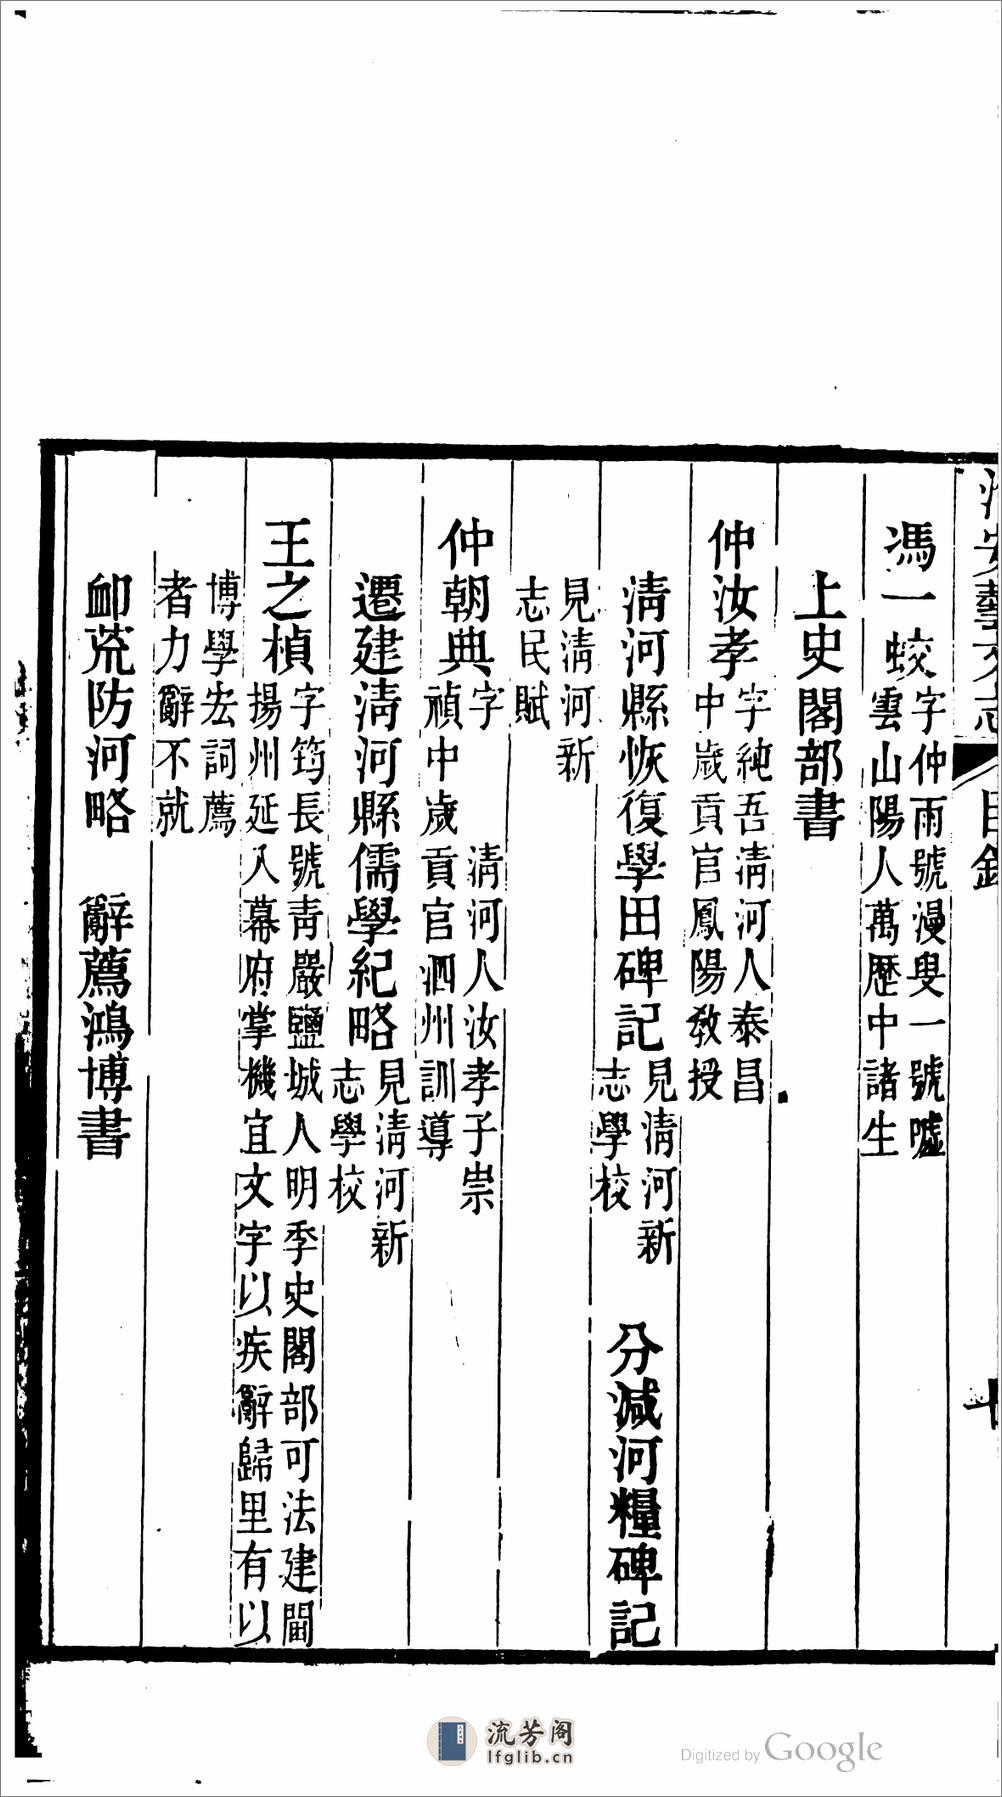 馮一蛟字仲雨號漫叟一號噓
雲山陽人萬歷中諸生
上史閣部書
仲汝孝字純吾清河人泰昌
中歲貢官鳳陽教授
清河縣恢復學田碑記見清河新
志學校
分減河糧碑記
見清河新
志民賦
仲朝典字 清河人汝孝子崇
禎中歲貢官泗州訓導
遷建清河縣儒學紀略見清河新
志學校
王之楨字筠長號青巖鹽城人明季史閣部可法建閫
揚州延入幕府掌機宜文字以疾辭歸里有以
博學宏詞薦
者力辭不就
卹荒防河略 辭薦鴻博書
流芳閣
lfglib.cn
Digitized by Google